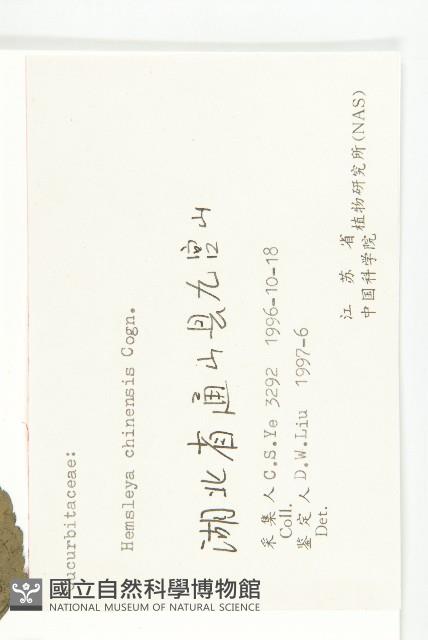 ucurbitaceae:
Hemsleya chinensis Cogn.
湖北省通山县九宫山
采集人 C.S.Ye 3292 1996-10-18
Coll.
鉴定人 D.W.Liu 1997-6
Det.
江苏省植物研究所(NAS)
中国科学院
國立自然科學博物館
NATIONAL MUSEUM OF NATURAL SCIENCE